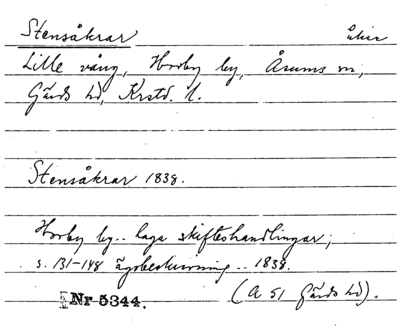 Stensåkrar åker
Lille vång, Horby by, Åsums sn,
Gärds hd, Krstd. l.
Stensåkrar 1838.
Horby by.. laga skifteshandlingar;
s. 131-148 ägobeskrivning .. 1838.
Nr 5344. (A 51 Gärds hd).